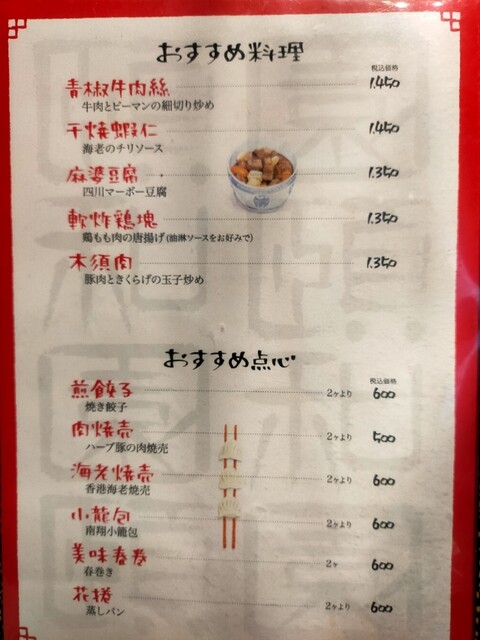 おすすめ料理
税込価格
青椒牛肉絲 1,450
牛肉とピーマンの細切り炒め
干焼蝦仁 1,450
海老のチリソース
麻婆豆腐 1,350
四川マーボー豆腐
軟炸鶏塊 1,350
鶏もも肉の唐揚げ(油淋ソースをお好みで)
木須肉 1,350
豚肉ときくらげの玉子炒め
おすすめ点心
税込価格
煎餃子 2ヶより 600
焼き餃子
肉焼売 2ヶより 500
ハーブ豚の肉焼売
海老焼売 2ヶより 600
香港海老焼売
小龍包 2ヶより 600
南翔小籠包
美味春巻 2ヶ 600
春巻き
花捲 2ヶより 600
蒸しパン